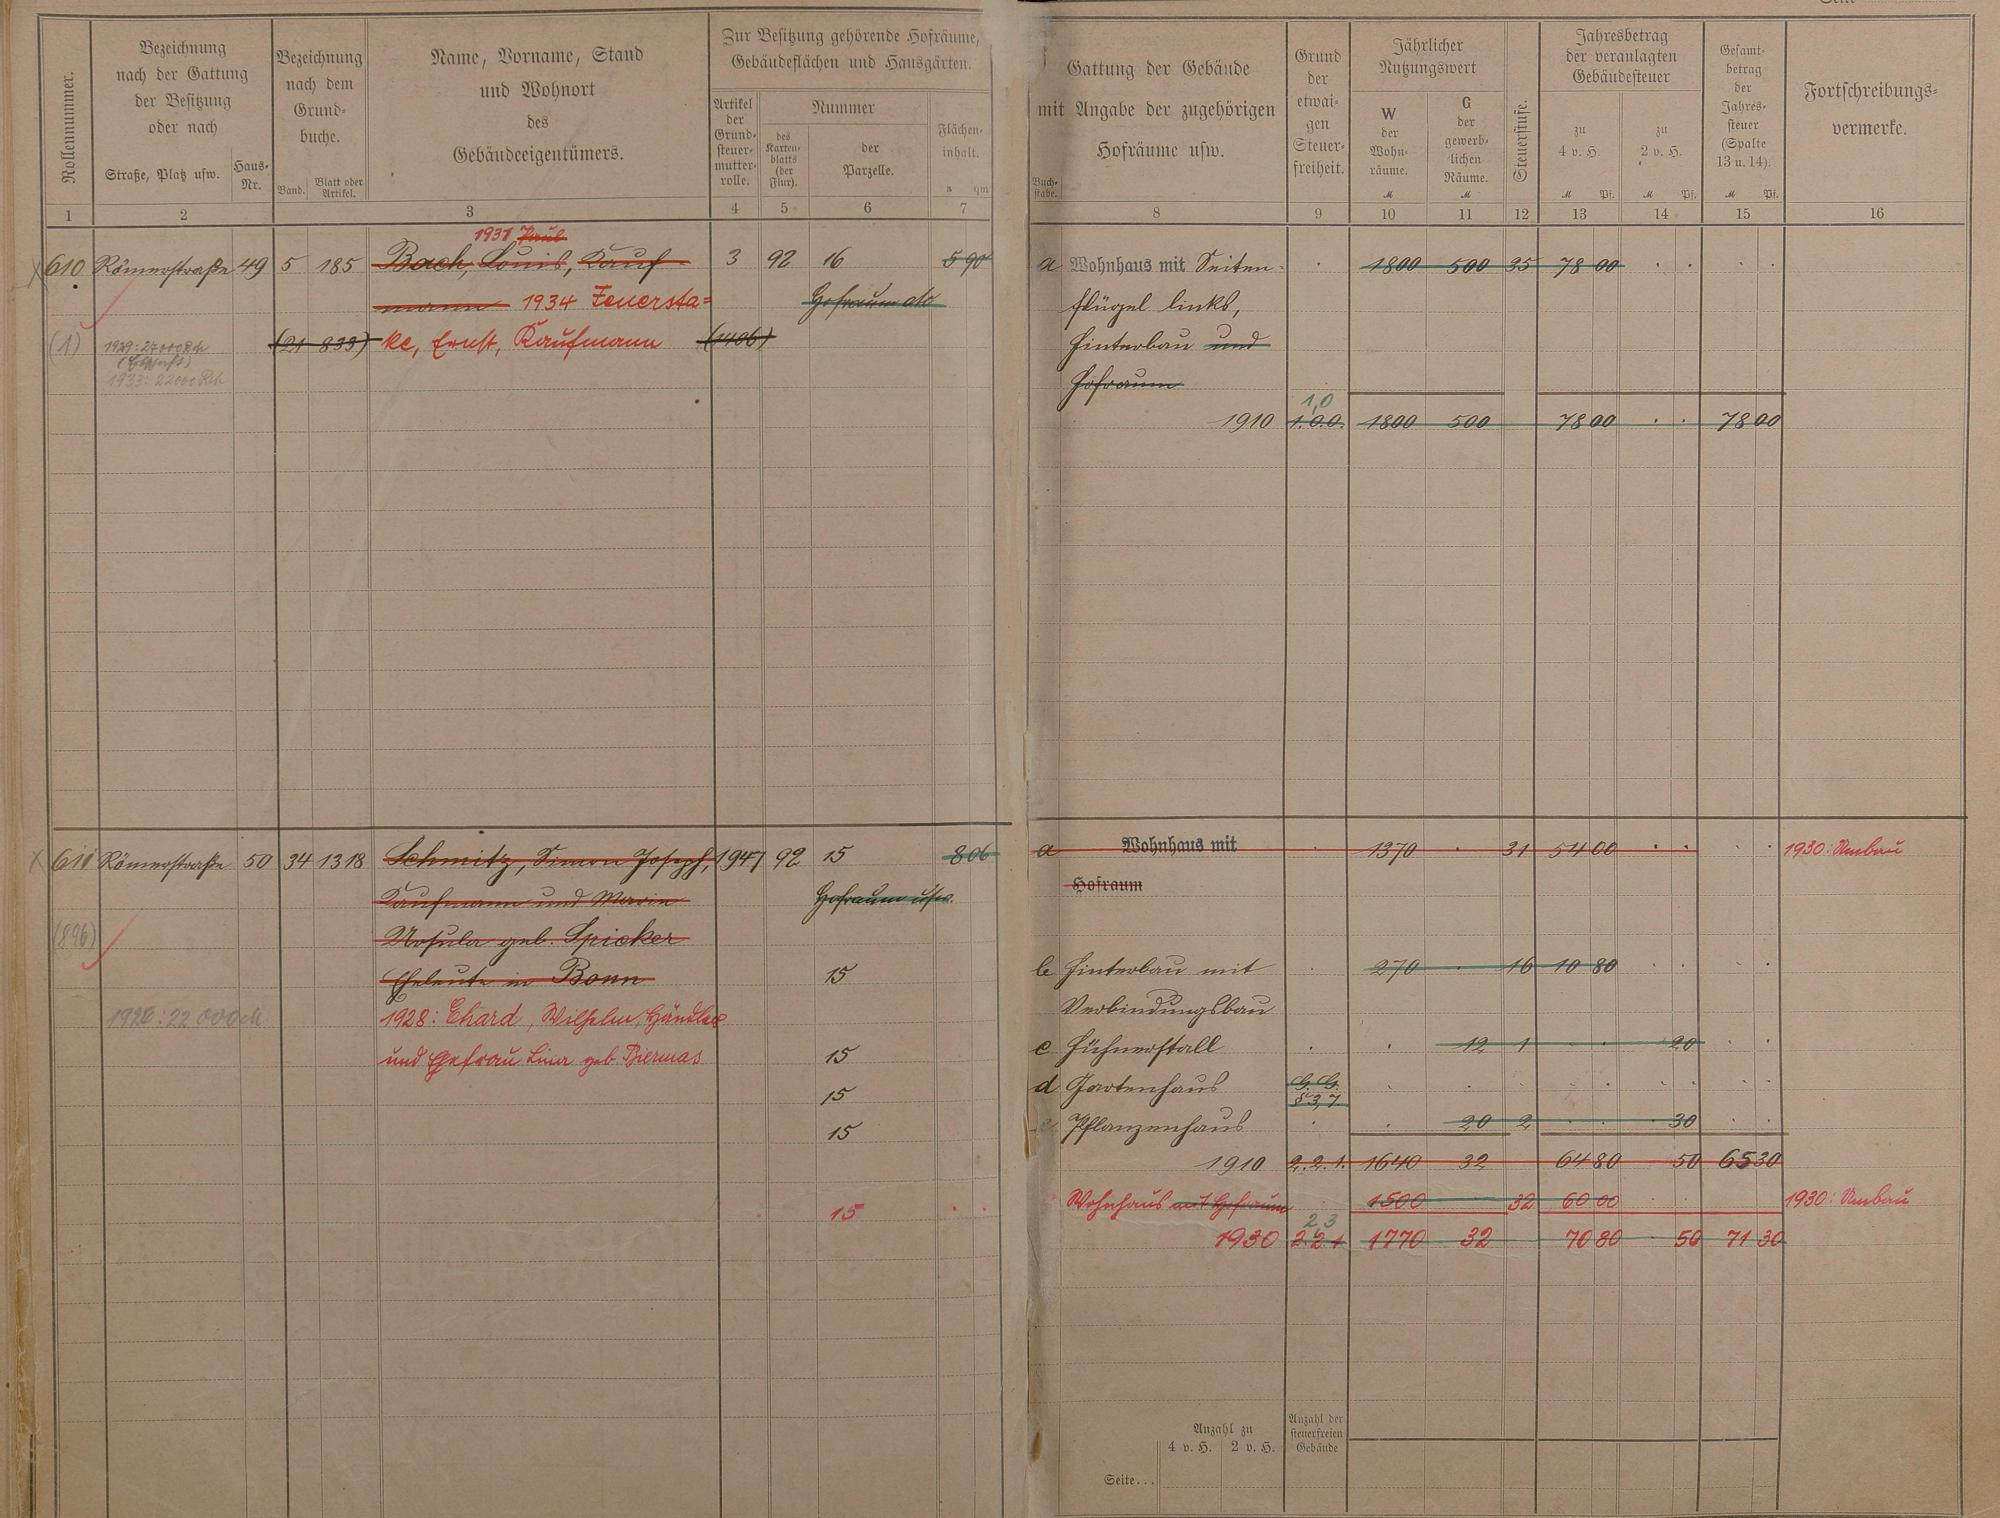 Rollennummer.
Bezeichnung
nach der Gattung
der Besitzung
oder nach
Straße, Platz usw.
Haus-
Nr.
Bezeichnung
nach dem
Grund-
buche.
Band.
Blatt oder
Artikel.
Name, Vorname, Stand
und Wohnort
des
Gebäudeeigentümers.
Zur Besitzung gehörende Hofräume,
Gebäudeflächen und Hausgärten.
Artikel
der
Grund-
steuer-
mutter-
rolle.
Nummer
des
Karten-
blatts
(der
Flur).
der
Parzelle.
Flächen-
inhalt.
a qm
Buch-
stabe.
Gattung der Gebäude
mit Angabe der zugehörigen
Hofräume usw.
Grund
der
etwai-
gen
Steuer-
freiheit.
Jährlicher
Nutzungswert
W
der
Wohn-
räume.
M
G
der
gewerb-
lichen
Räume.
M
Steuerstufe.
Jahresbetrag
der veranlagten
Gebäudesteuer
zu
4 v. H.
M Pf.
zu
2 v. H.
M Pf.
Gesamt-
betrag
der
Jahres-
steuer
(Spalte
13 u. 14).
M Pf.
Fortschreibungs-
vermerke.
1 2 3 4 5 6 7 8 9 10 11 12 13 14 15 16
1931 Paul
610 Römerstraße 49 5 185 Bach, Louis, Kauf- 3 92 16 5 90 a Wohnhaus mit Seiten- 1800 500 35 78 00
mann 1934 Feuersta= Hofraum flügel links,
(1) 1929: 27000 (21 833) ke, Ernst, Kaufmann (1406) Hinterbau und
1933: 22000 Hofraum
1,0
1910 1.0.0. 1800 500 78 00 78 00
611 Römerstraße 50 34 1318 Schmitz, Simon Joseph, 1947 92 15 8 06 a Wohnhaus mit 1370 31 54 00 1930: Umbau
Kaufmann und Maria Hofraum usw. Hofraum
(896) Ursula geb. Spicker
Eheleute in Bonn 15 b Hinterbau mit 270 16 10 80
22 000 M 1928: Ehard, Wilhelm, Händler Verbindungsbau
und Ehefrau Lina geb. 15 c Hühnerstall 12 1 20
15 d Gartenhaus G. G.
§ 3,7
15 e Pflanzenhaus 20 2 30
1910 2.2.1. 1640 32 64 80 50 65 30
15 Wohnhaus mit Hofraum 1500 32 60 00 1930: Umbau
2,3
1930 2 2 1 1770 32 70 80 50 71 30
Anzahl zu
4 v. H. 2 v. H.
Anzahl der
steuerfreien
Gebäude
Seite...